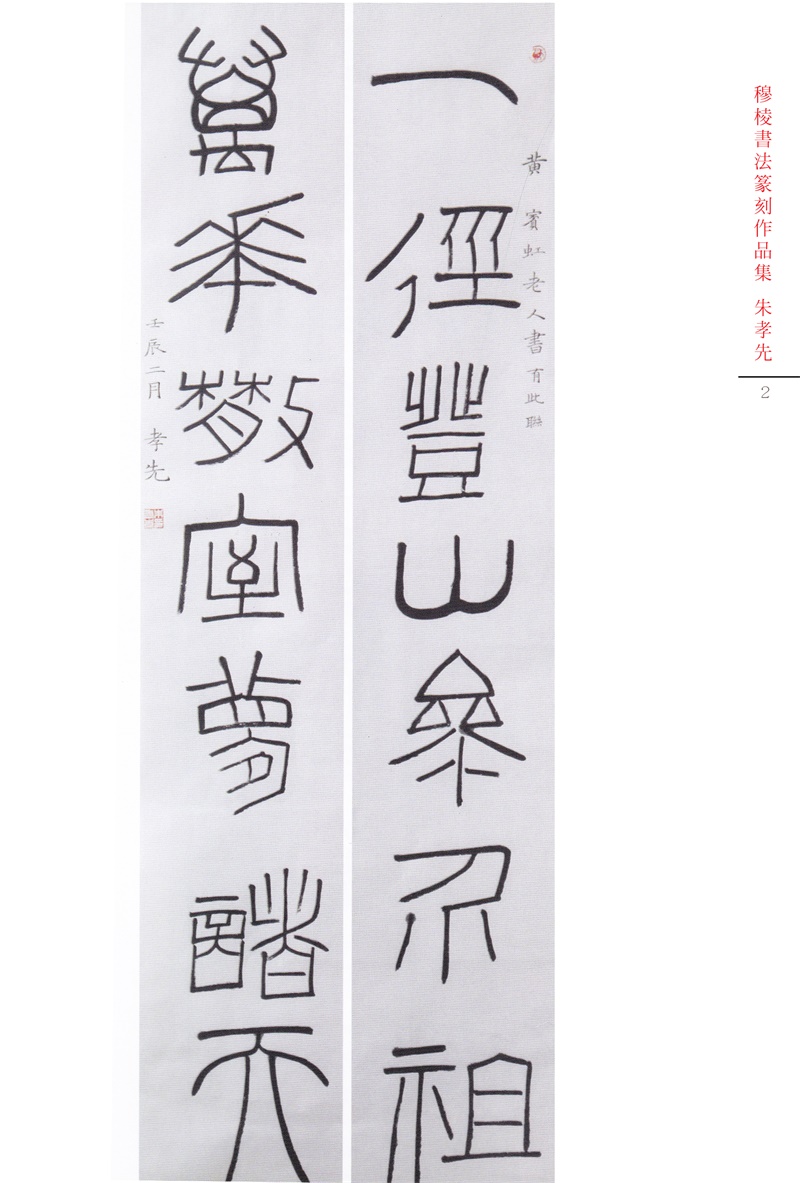 穆棱書法篆刻作品集 朱孝先
2
黄賓虹老人書有此聯
一徑登山參祖
萬華散室夢諸天
壬辰二月 孝先